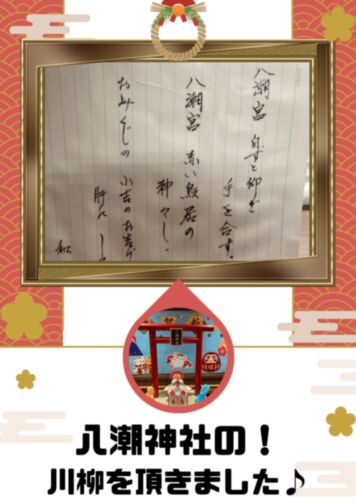 八潮宮 自ずと仰ぎ
手を合す
八潮宮 赤い鳥居の
神々し
おみくじの 小吉のお告げ
肝に
和
八潮神社の!
川柳を頂きました♪